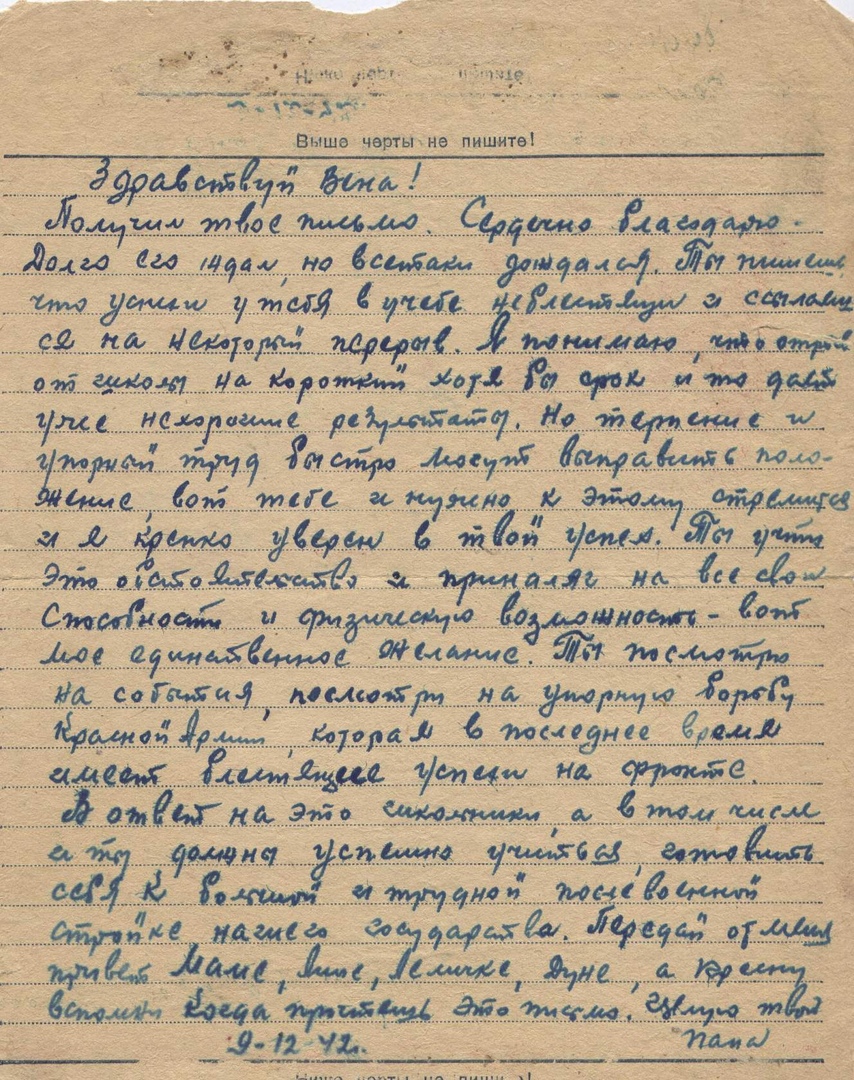 Ниже черты не пишите
Выше черты не пишите!
Здравствуй Вена!
Получил твое письмо. Сердечно благодарю.
Долго его ждал, но всетаки дождался. Ты пишешь,
что успехи у тебя в учебе неблестящи и ссылаеш
ся на некоторый перерыв. Я понимаю, что отрыв
от школы на короткий хотя бы срок и то дает
уже нехорошие результаты. Но терпение и
упорный труд быстро могут выправить поло-
жение, вот тебе и нужно к этому стремится
и я крепко уверен в твой успех. Ты учти
это обстоятельство и приналяг на все свои
способности и физическую возможность - вот
мое единственное желание. Ты посмотри
на события, посмотри на упорную борьбу
Красной Армии, которая в последнее время
имеет блестящее успехи на фронте.
В ответ на это школьники, а в том числе
и ты должны успешно учиться, готовить
себя к большой и трудной послевоенной
стройке нашего государства. Передай от меня
привет Маме, Лемичке, Дуне, а Крестну
вспомни когда прочтешь это письмо. Целую твой
9-12-42г. Папа
Ниже черты не пиши